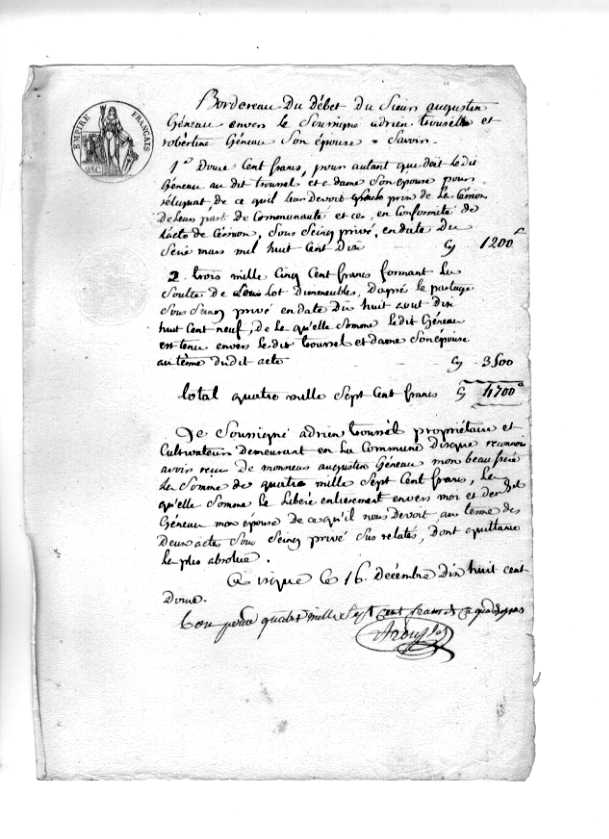 EMPIRE FRANÇAIS
Bordereau Du Débet Du Sieur augustin
Géneau envers le Soussigné adrien trousselle et
robertine Géneau Son épouse = Savoir.
1° Douze Cent francs, pour autant que doit le dit
Géneau au dit troussel et a dame Son épouse pour
reliquat de ce qu'il leur devoit prix de la Cession
De leur part de Communauté et ces, en Conformité de
L'acte de Cession, Sous Seing privé, en date Du
Seize mars mil huit Cent Dix 1200
2. trois mille Cinq Cent francs formant la
Soulte de Lot D'immeubles, Daprè le partage
Sous Seing privé en date Du huit aout dix
huit Cent neuf, de la qu'elle Somme le dit Géneau
est tenu envers le dit troussel et dame Son épouse
au terme du dit acte 3500
total quatre mille Sept Cent francs 4700
Je Soussigné adrien troussel propriétaire et
Cultivateur demeurant en la Commune Disque reconnoi
avoir recus de monsieur augustin Géneau mon beau frère
la Somme de quatre mille Sept Cent frans, La
qu'elle Somme le Libère entièrement envers moi et
Géneau mon épouse de ce qu'il nous devoit au terme des
Deux acte Sous Seing privé Sus relatés, Dont quittance
la plus absolue.
A isque le 16. Décembre Dix huit cent
Douze.
bon pour quatre mille Sept cent